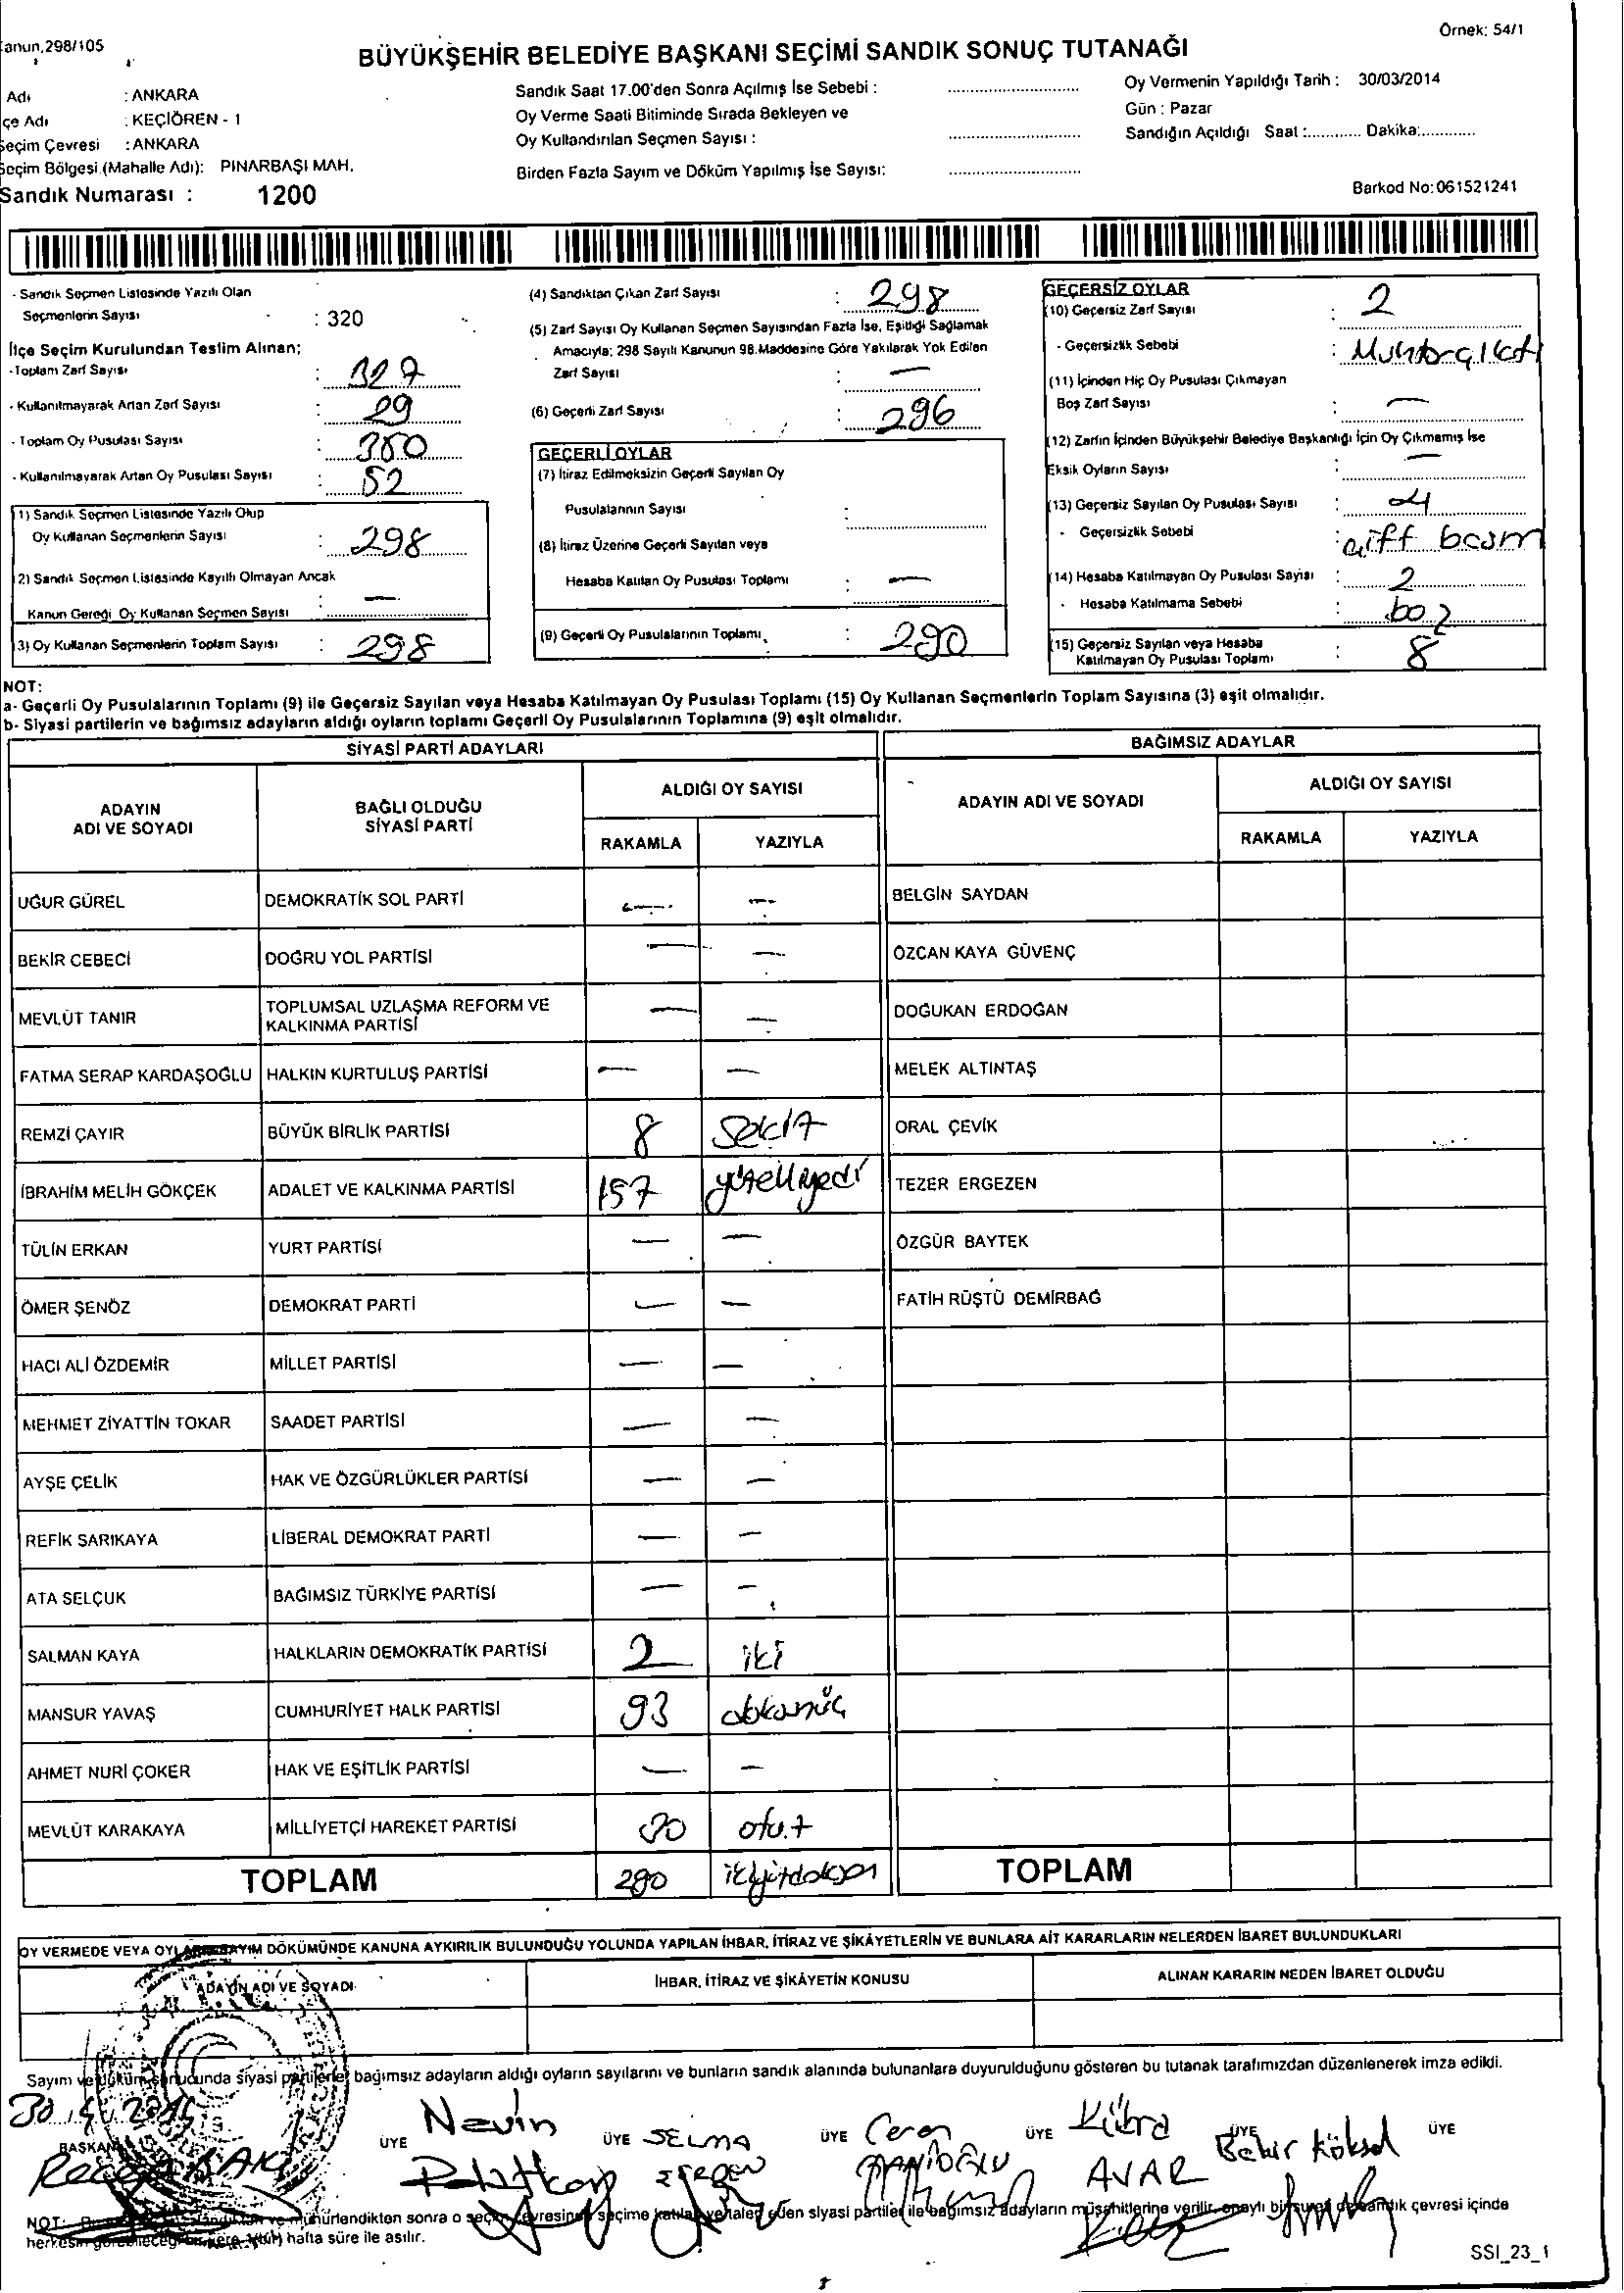 Kanun,298/105
Örnek: 54/1
BÜYÜKŞEHİR BELEDİYE BAŞKANI SEÇİMİ SANDIK SONUÇ TUTANAĞI
Adı : ANKARA
çe Adı : KEÇİÖREN - 1
Seçim Çevresi : ANKARA
Seçim Bölgesi (Mahalle Adı): PINARBAŞI MAH.
Sandık Numarası : 1200
Sandık Saat 17.00'den Sonra Açılmış İse Sebebi :
Oy Verme Saati Bitiminde Sırada Bekleyen ve
Oy Kullandırılan Seçmen Sayısı :
Birden Fazla Sayım ve Döküm Yapılmış İse Sayısı:
Oy Vermenin Yapıldığı Tarih : 30/03/2014
Gün : Pazar
Sandığın Açıldığı Saat :............ Dakika:............
Barkod No:061521241
- Sandık Seçmen Listesinde Yazılı Olan
Seçmenlerin Sayısı : 320
İlçe Seçim Kurulundan Teslim Alınan;
-Toplam Zarf Sayısı : 327
- Kullanılmayarak Artan Zarf Sayısı : 29
- Toplam Oy Pusulası Sayısı : 350
- Kullanılmayarak Artan Oy Pusulası Sayısı : 52
1) Sandık Seçmen Listesinde Yazılı Olup
Oy Kullanan Seçmenlerin Sayısı : 298
2) Sandık Seçmen Listesinde Kayıtlı Olmayan Ancak
Kanun Gereği Oy Kullanan Seçmen Sayısı : —
3) Oy Kullanan Seçmenlerin Toplam Sayısı : 298
(4) Sandıktan Çıkan Zarf Sayısı : 298
(5) Zarf Sayısı Oy Kullanan Seçmen Sayısından Fazla İse, Eşitliği Sağlamak
Amacıyla; 298 Sayılı Kanunun 98.Maddesine Göre Yakılarak Yok Edilen
Zarf Sayısı : —
(6) Geçerli Zarf Sayısı : 296
GEÇERLİ OYLAR
(7) İtiraz Edilmeksizin Geçerli Sayılan Oy
Pusulalarının Sayısı :
(8) İtiraz Üzerine Geçerli Sayılan veya
Hesaba Katılan Oy Pusulası Toplamı : —
(9) Geçerli Oy Pusulalarının Toplamı : 290
GEÇERSİZ OYLAR
(10) Geçersiz Zarf Sayısı : 2
- Geçersizlik Sebebi :
(11) İçinden Hiç Oy Pusulası Çıkmayan
Boş Zarf Sayısı : —
(12) Zarfın İçinden Büyükşehir Belediye Başkanlığı İçin Oy Çıkmamış İse
Eksik Oyların Sayısı : —
(13) Geçersiz Sayılan Oy Pusulası Sayısı : 04
- Geçersizlik Sebebi : çift basım
(14) Hesaba Katılmayan Oy Pusulası Sayısı : 2
- Hesaba Katılmama Sebebi : boş
(15) Geçersiz Sayılan veya Hesaba
Katılmayan Oy Pusulası Toplamı : 8
NOT:
a- Geçerli Oy Pusulalarının Toplamı (9) ile Geçersiz Sayılan veya Hesaba Katılmayan Oy Pusulası Toplamı (15) Oy Kullanan Seçmenlerin Toplam Sayısına (3) eşit olmalıdır.
b- Siyasi partilerin ve bağımsız adayların aldığı oyların toplamı Geçerli Oy Pusulalarının Toplamına (9) eşit olmalıdır.
SİYASİ PARTİ ADAYLARI
BAĞIMSIZ ADAYLAR
ADAYIN ADI VE SOYADI
BAĞLI OLDUĞU SİYASİ PARTİ
ALDIĞI OY SAYISI
RAKAMLA YAZIYLA
ADAYIN ADI VE SOYADI
ALDIĞI OY SAYISI
RAKAMLA YAZIYLA
UĞUR GÜREL DEMOKRATİK SOL PARTİ — — BELGİN SAYDAN
BEKİR CEBECİ DOĞRU YOL PARTİSİ — — ÖZCAN KAYA GÜVENÇ
MEVLÜT TANIR TOPLUMSAL UZLAŞMA REFORM VE KALKINMA PARTİSİ — — DOĞUKAN ERDOĞAN
FATMA SERAP KARDAŞOĞLU HALKIN KURTULUŞ PARTİSİ — — MELEK ALTINTAŞ
REMZİ ÇAYIR BÜYÜK BİRLİK PARTİSİ 8 sekiz ORAL ÇEVİK
İBRAHİM MELİH GÖKÇEK ADALET VE KALKINMA PARTİSİ 157 yüzelliyedi TEZER ERGEZEN
TÜLİN ERKAN YURT PARTİSİ — — ÖZGÜR BAYTEK
ÖMER ŞENÖZ DEMOKRAT PARTİ — — FATİH RÜŞTÜ DEMİRBAĞ
HACI ALİ ÖZDEMİR MİLLET PARTİSİ — —
MEHMET ZİYATTİN TOKAR SAADET PARTİSİ — —
AYŞE ÇELİK HAK VE ÖZGÜRLÜKLER PARTİSİ — —
REFİK SARIKAYA LİBERAL DEMOKRAT PARTİ — —
ATA SELÇUK BAĞIMSIZ TÜRKİYE PARTİSİ — —
SALMAN KAYA HALKLARIN DEMOKRATİK PARTİSİ 2 iki
MANSUR YAVAŞ CUMHURİYET HALK PARTİSİ 93 doksanüç
AHMET NURİ ÇOKER HAK VE EŞİTLİK PARTİSİ — —
MEVLÜT KARAKAYA MİLLİYETÇİ HAREKET PARTİSİ 30 otuz
TOPLAM 290 ikiyüzdoksan TOPLAM
OY VERMEDE VEYA OYLARIN SAYIM DÖKÜMÜNDE KANUNA AYKIRILIK BULUNDUĞU YOLUNDA YAPILAN İHBAR, İTİRAZ VE ŞİKÂYETLERİN VE BUNLARA AİT KARARLARIN NELERDEN İBARET BULUNDUKLARI
ADAYIN ADI VE SOYADI
İHBAR, İTİRAZ VE ŞİKÂYETİN KONUSU
ALINAN KARARIN NEDEN İBARET OLDUĞU
Sayım ve döküm sonucunda siyasi partilerle, bağımsız adayların aldığı oyların sayılarını ve bunların sandık alanında bulunanlara duyurulduğunu gösteren bu tutanak tarafımızdan düzenlenerek imza edildi.
BAŞKAN
ÜYE Nevin
ÜYE SELMA
ÜYE Ceren
ÜYE Kübra AVAR
ÜYE Bekir Köksal
ÜYE
NOT: mühürlendikten sonra o seçim çevresinde seçime katılan ve talep eden siyasi partiler ile bağımsız adayların müşahitlerine verilir, onaylı bir sureti de sandık çevresi içinde
herkesin görebileceği bir yere, (bir) hafta süre ile asılır.
SSI_23_1